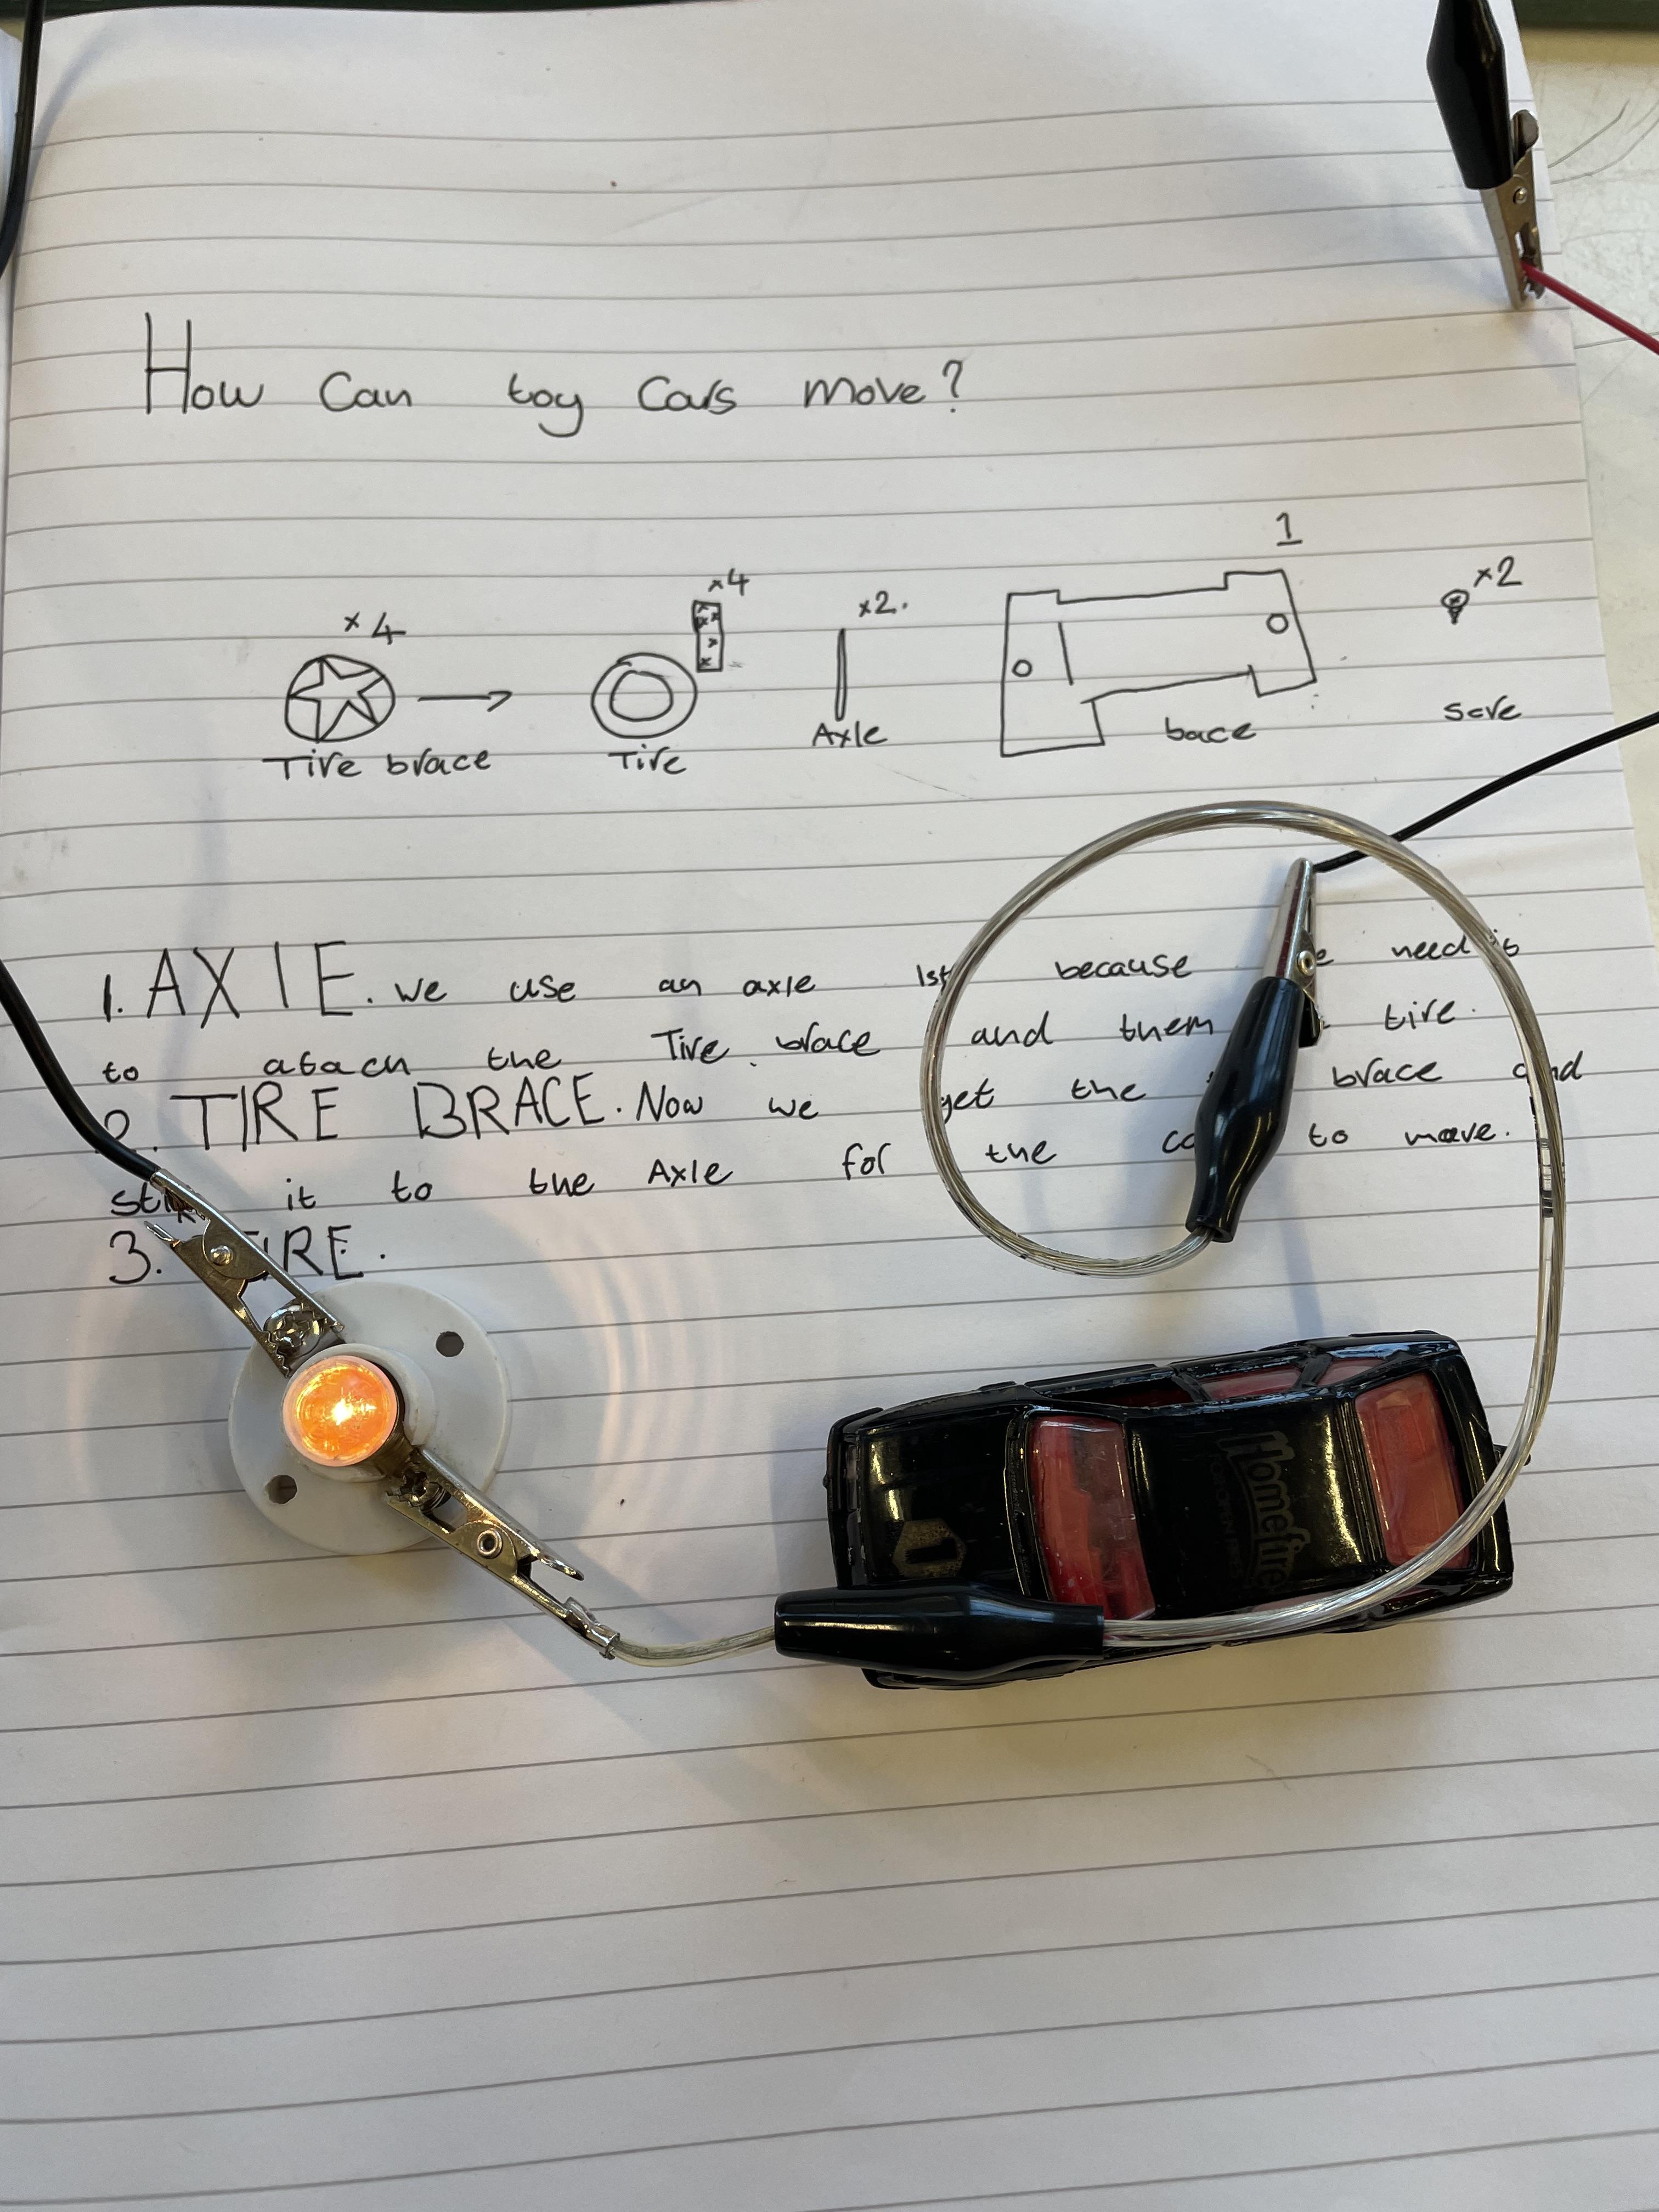 How Can toy Cars move?
1
×4 ×4 ×2. ×2
Tire brace Tire Axle bace scre
1. AXlE. we use an axle 1st because need is
to atach the Tire brace and them tire.
2. TIRE BRACE. Now we get the brace and
it to the Axle for the to move.
3.
Homefire